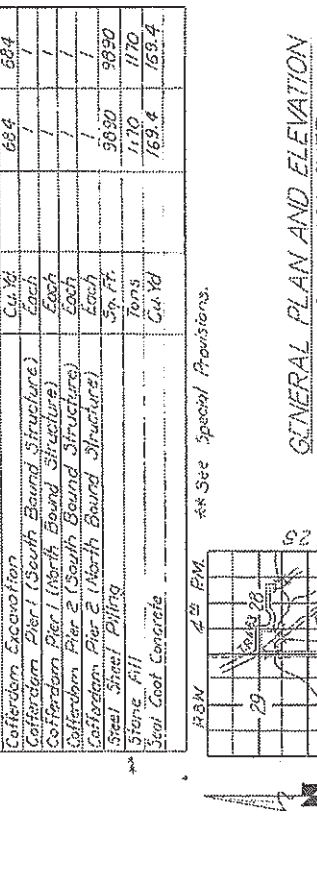 Cofferdam Excavation Cu. Yd. 684 684
Cofferdam Pier 1 (South Bound Structure) Each 1 1
Cofferdam Pier 1 (North Bound Structure) Each 1 1
Cofferdam Pier 2 (South Bound Structure) Each 1 1
Cofferdam Pier 2 (North Bound Structure) Each 1 1
Steel Sheet Piling Sq. Ft. 9890 9890
** Stone Fill Tons 1170 1170
Seal Coat Concrete Cu. Yd 169.4 169.4
** See Special Provisions.
R8W 4th P.M.
29 28
GENERAL PLAN AND ELEVATION